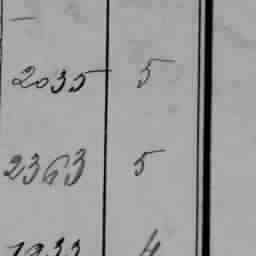 —
2035 5
2363 5
1933 4